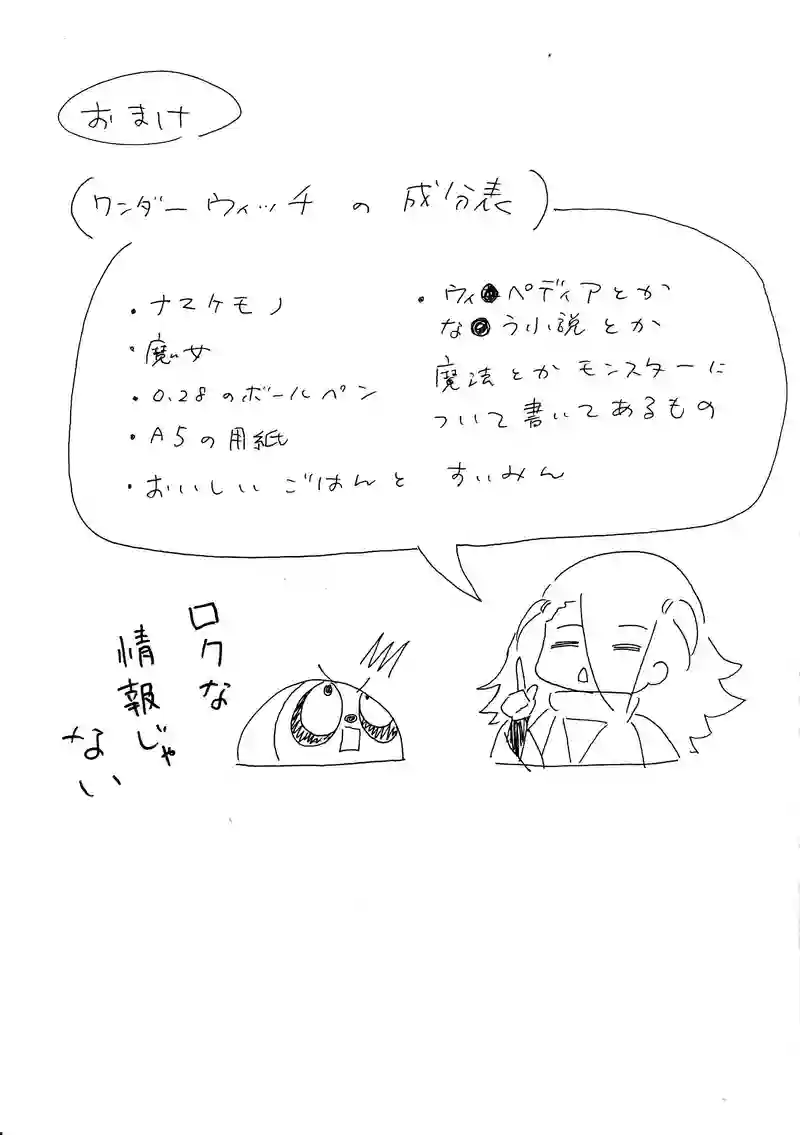 おまけ
(ワンダーウィッチの成分表)
・ナマケモノ
・魔女
・0.28のボールペン
・A5の用紙
・おいしいごはんと すいみん
・ウィ●ペディアとか
な●う小説とか
魔法とかモンスターに
ついて書いてあるもの
ロクな
情報じゃ
ない